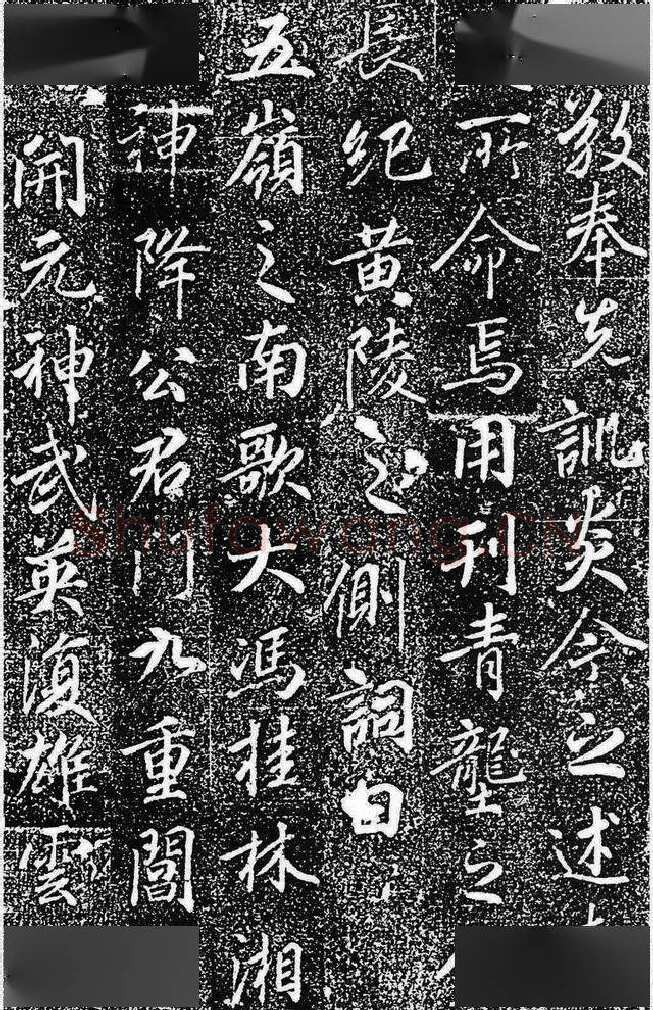 敬奉先訓炎今之述
所命焉用刊青壟之
長紀黄陵之側詞曰
五嶺之南歌大馮桂林湘
神降公君門九重閶
開元神武英復雄雲
Shufawang.CN